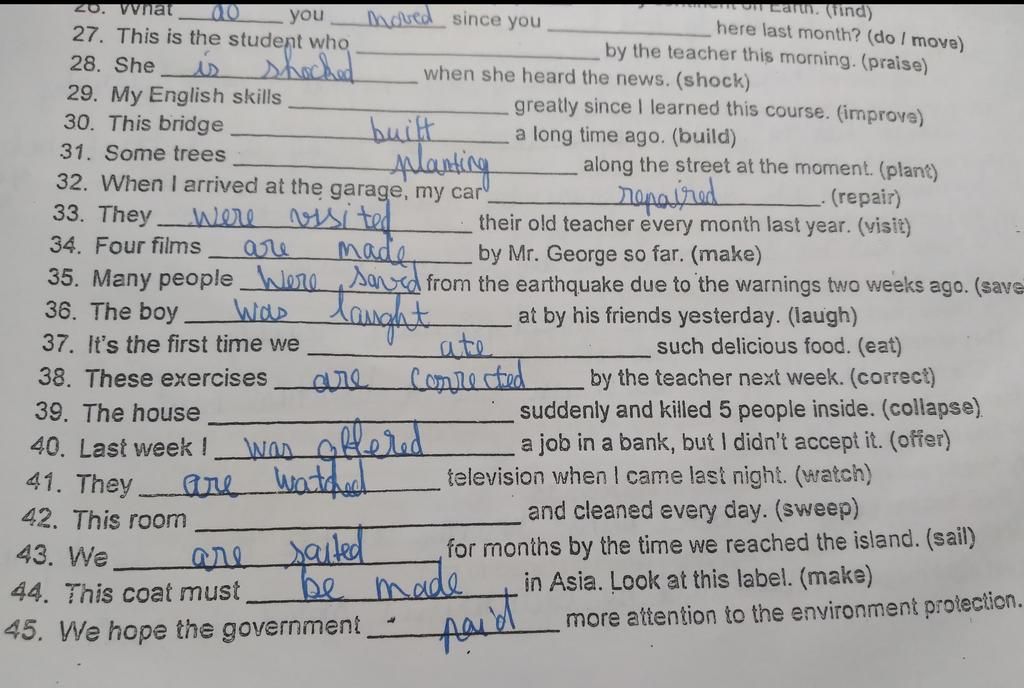 26. What do you moved since you ____________ here last month? (do / move)
continent on Earth. (find)
27. This is the student who ____________ by the teacher this morning. (praise)
28. She is shocked when she heard the news. (shock)
29. My English skills ____________ greatly since I learned this course. (improve)
30. This bridge built a long time ago. (build)
31. Some trees planting along the street at the moment. (plant)
32. When I arrived at the garage, my car repaired. (repair)
33. They were visited their old teacher every month last year. (visit)
34. Four films are made by Mr. George so far. (make)
35. Many people were saved from the earthquake due to the warnings two weeks ago. (save
36. The boy was laught at by his friends yesterday. (laugh)
37. It's the first time we ate such delicious food. (eat)
38. These exercises are corrected by the teacher next week. (correct)
39. The house ____________ suddenly and killed 5 people inside. (collapse)
40. Last week I was offered a job in a bank, but I didn't accept it. (offer)
41. They are watched television when I came last night. (watch)
42. This room ____________ and cleaned every day. (sweep)
43. We are sailed for months by the time we reached the island. (sail)
44. This coat must be made in Asia. Look at this label. (make)
45. We hope the government paid more attention to the environment protection.